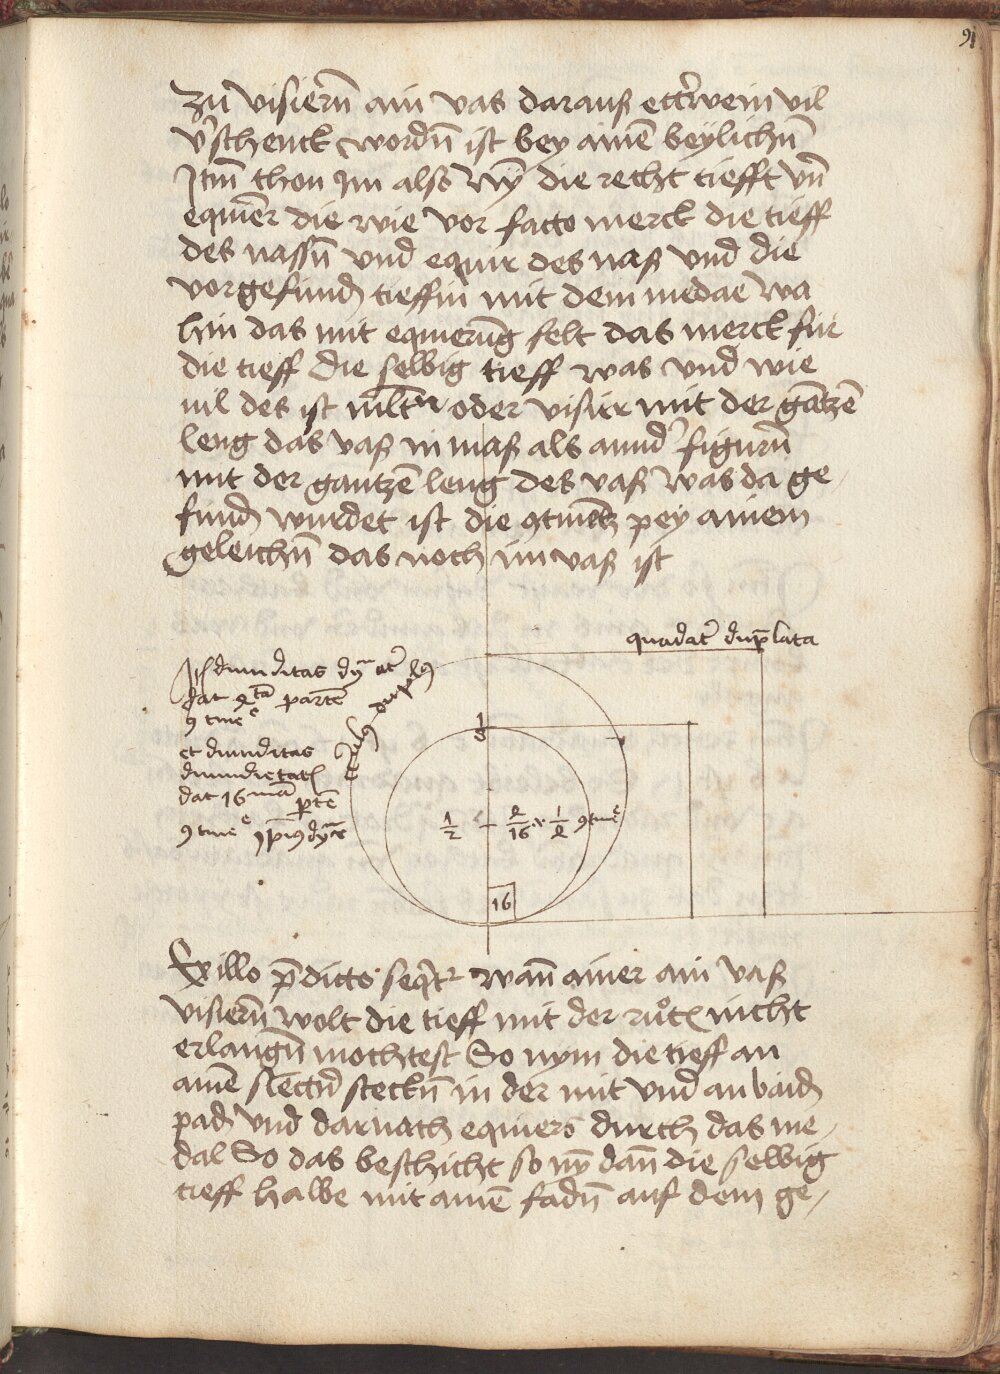 91
Zu visiern ain vas darauß ettwein vil
v'schenck wordn ist bey ainē beylichn
Itm thon Im also Ny die recht tiefft vn
equier die wie vor facto merck die tieff
des nassn vnd equir des naß vnd die
vorgefund tieffin mit dem medae wa
hin das mit equierūg felt das merck für
die tieff die selbig tieff was vnd wie
vil des ist oder visier mit der gātzē
leng das vaß in maß als annd' figurn
mit der gantzē leng des vaß was da ge
fund wurdet ist die pey ainem
geleichn das noch im vaß ist
quadat' duplata
dimiditas
dat partē
et dimiditas
dat 16 ptē
1/8
1/2
2/16
1/2
16
Ex illo pdicto seqt wan ainer ain vaß
visiern wolt die tieff mit der rutn nicht
erlangn mochtest So nym die tieff an
ainē steckn in der mit vnd an baid
pad vnd darnach equiers durch das me
dal So das beschicht so ny dan die selbig
tieff halbe mit ainē fadn auf dem ge